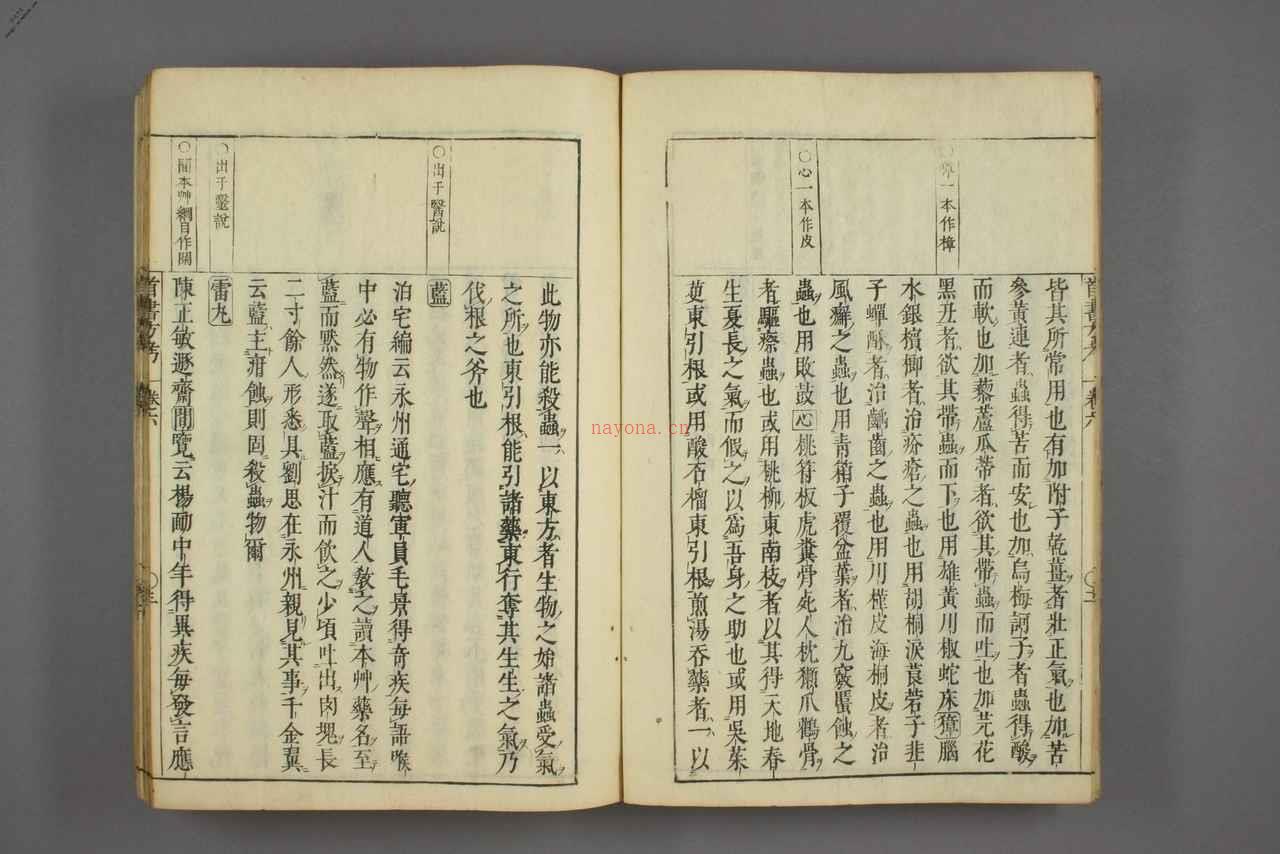 一本作樟
○心一本作皮
皆其所常用也有加附子乾薑者壯正氣也加苦
參黃連者蟲得苦而安也加烏梅訶子者蟲得酸
而軟也加藜蘆瓜蒂者欲其帶蟲而吐也加芫花
黑丑者欲其帶蟲而下也用雄黃川椒蛇床獐腦
水銀檳榔者治疥瘡之蟲也用胡桐淚莨菪子韭
子蟬酥者治齲齒之蟲也用川槿皮海桐皮者治
風癬之蟲也用青箱子覆盆葉者治九竅䘌蝕之
蟲也用敗鼓心桃符板虎糞骨死人枕獺爪鸛骨
者驅瘵蟲也或用桃柳東南枝者以其得天地春
生夏長之氣而假之以為吾身之助也或用吳茱
萸東引根或用酸石榴東引根煎湯吞藥者一以
○出于醫說
○出于醫說
○閒本艸綱目作閑
此物亦能殺蟲一以東方者生物之始諸蟲受氣
之所也東引根能引諸藥東行奪其生生之氣乃
伐根之斧也
藍
泊宅編云永州通宅聽寅員毛景得奇疾每語喉
中必有物作聲相應有道人教之讀本艸藥名至
藍而默然遂取藍捩汁而飲之少頃吐出肉塊長
二寸餘人形悉具劉思在永州親見其事千金翼
云藍主疳蝕則固殺蟲物爾
雷丸
陳正敏遯齋閒覽云楊勔中年得異疾每發言應
卷六
nayona.cn